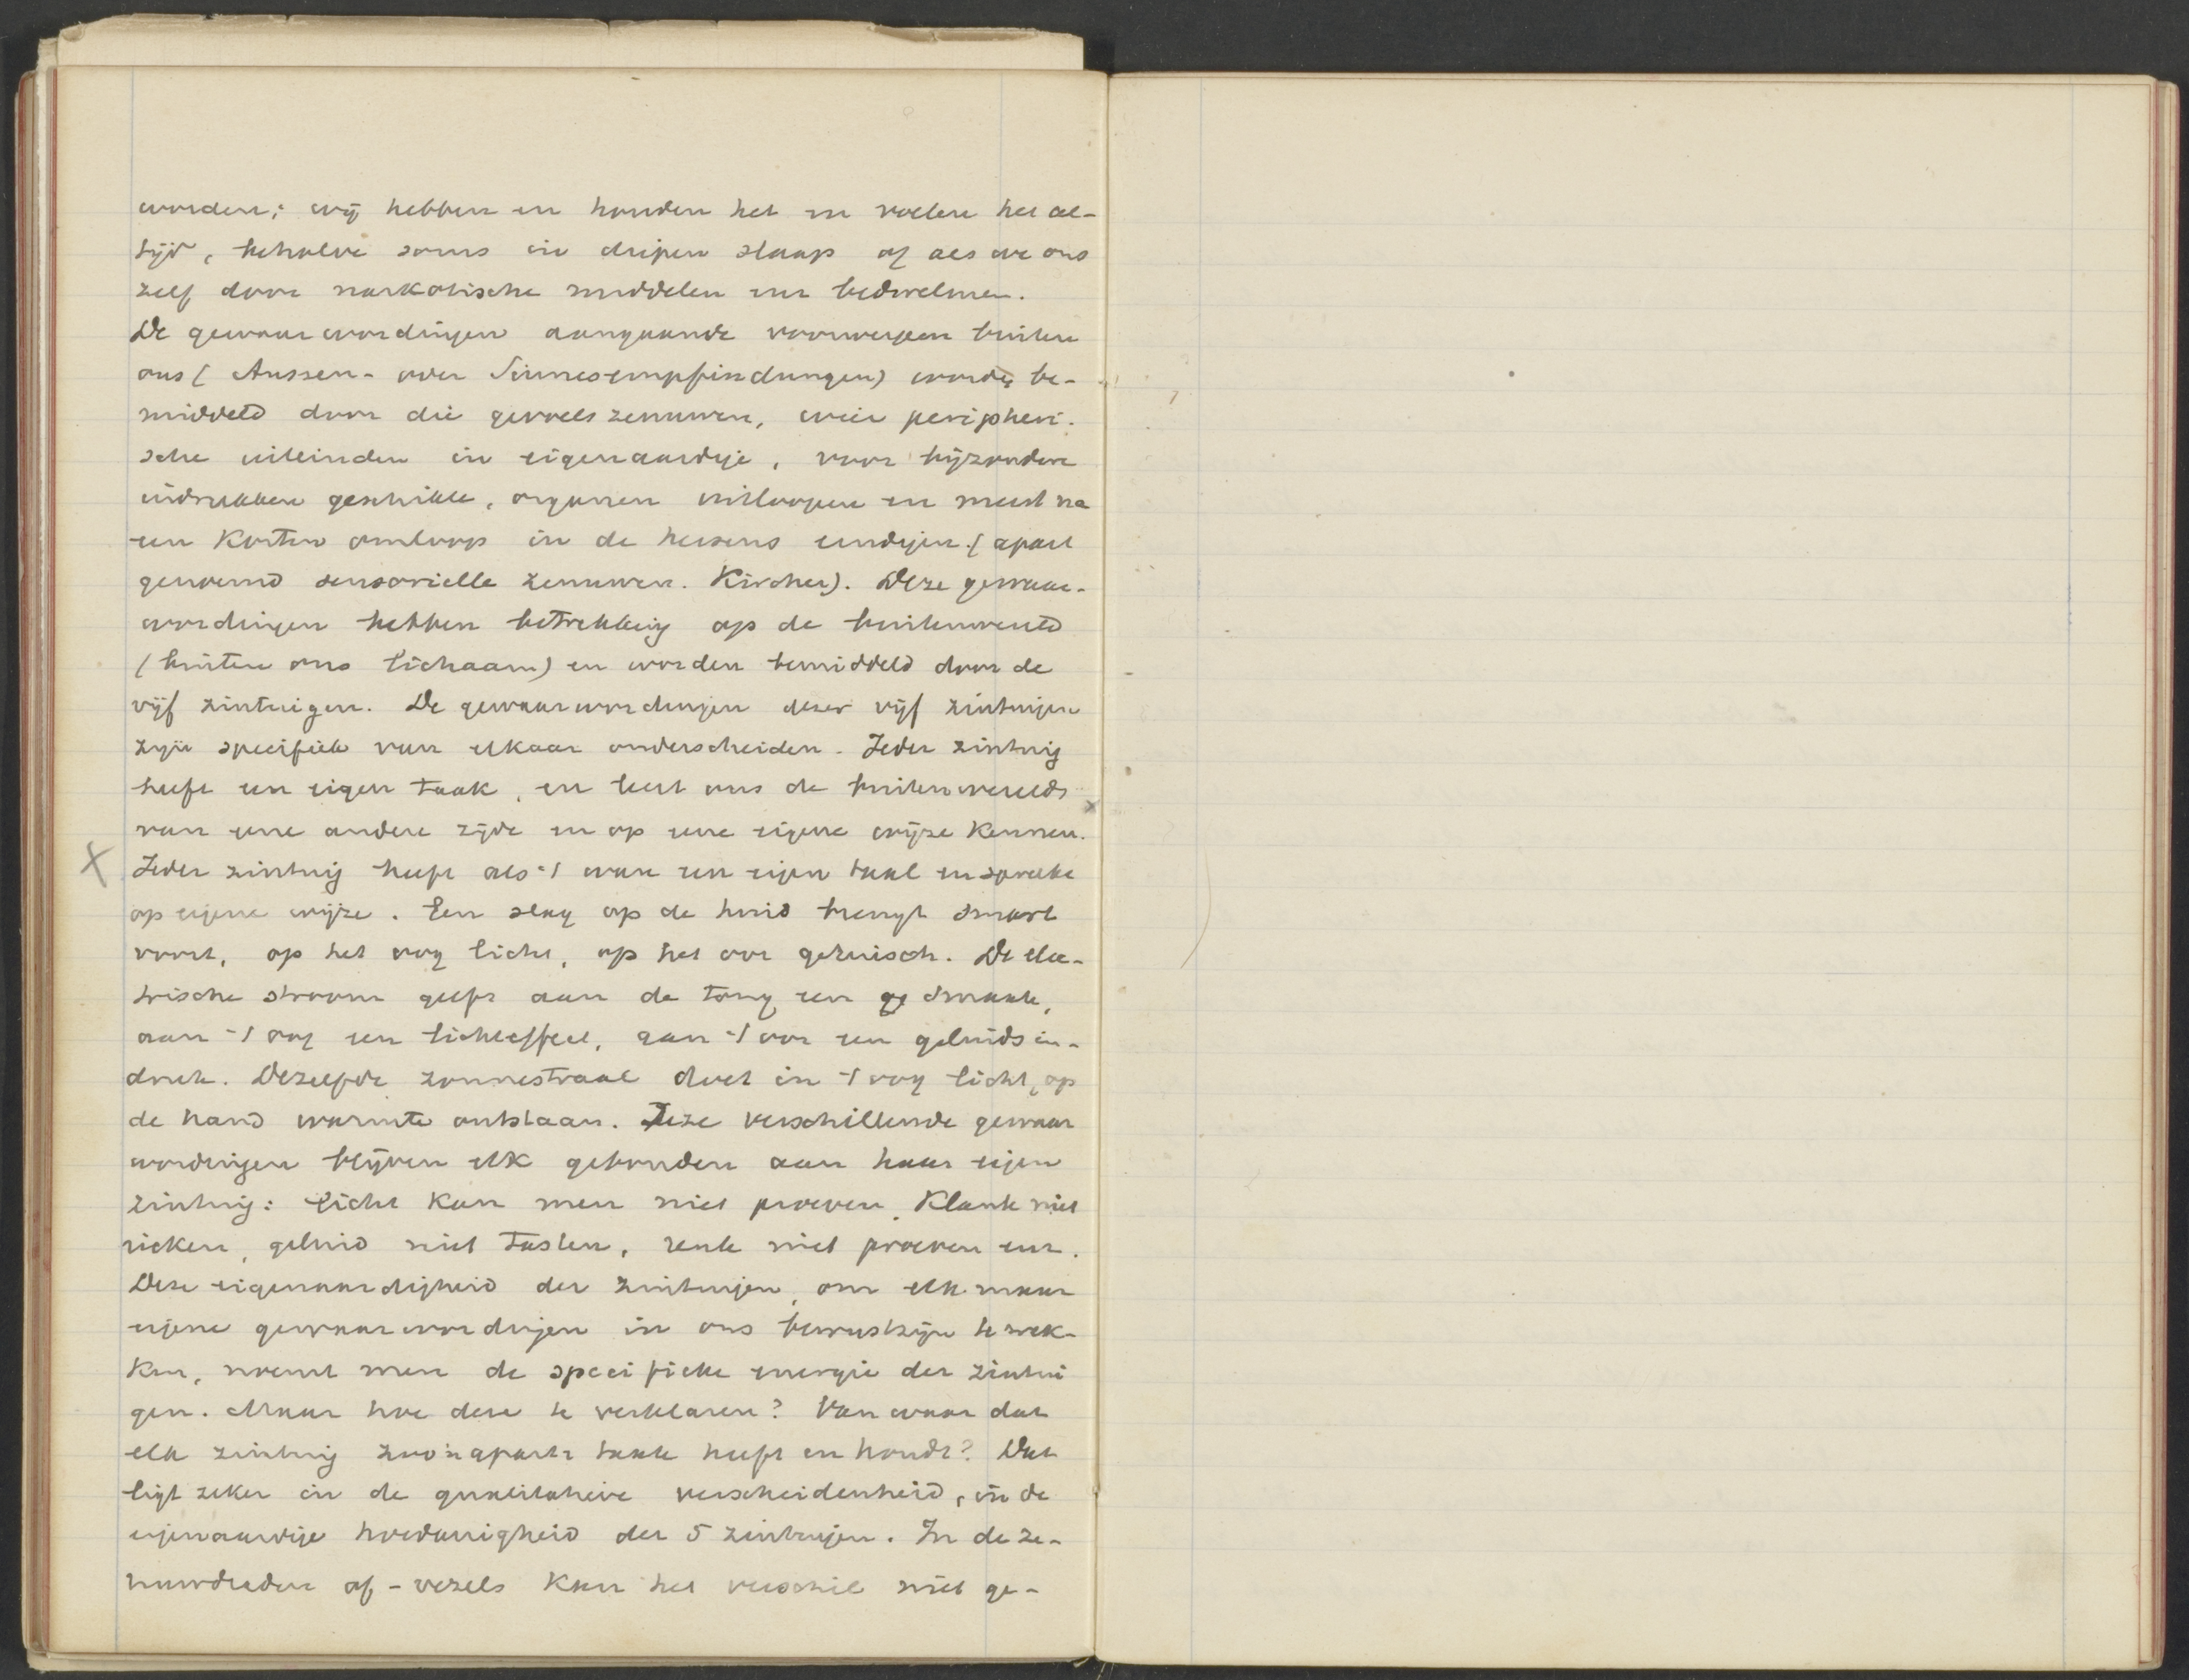 worden; wij hebben en houden het en voelen het al-
tijd, behalve soms in diepen slaap of als we ons
zelf door narkotische middelen enz bedwelmen.
De gewaarwordingen aangaande voorwerpen buiten
ons (Aussen- oder Sinnesempfindungen) worden be-
middeld door die gevoelszenuwen, wier peripheri-
sche uiteinden in eigenaardige, voor bijzondere
indrukken geschikte, organen uitloopen en meest na
een korten omloop in de hersens eindigen. (apart
genoemd sensorielle zenuwen. Kirchner). Deze gewaar-
wordingen hebben betrekking op de buitenwereld
(buiten ons lichaam) en worden bemiddeld door de
vijf zintuigen. De gewaarwordingen dezer vijf zintuigen
zijn specifiek van elkaar onderscheiden. Ieder zintuig
heeft een eigen taak, en leert ons de buitenwereld
van eene andere zijde en op eene eigene wijze kennen.
X Ieder zintuig heeft als 't ware een eigen taal en spreekt
op eigene wijze. Een slag op de huid brengt smart
voort, op het oog licht, op het oor geruisch. De elec-
trische stroom geeft aan de tong een ge smaak,
aan 't oog een lichteffect, aan 't oor een geluidsin-
druk. Dezelfde zonnestraal doet in 't oog licht, op
de hand warmte ontstaan. Deze verschillende gewaar
wordingen blijven elk gebonden aan haar eigen
zintuig: licht kan men niet proeven, klank niet
rieken, geluid niet tasten, reuk niet proeven enz.
Deze eigenaardigheid der zintuigen, om elk maar
eigene gewaarwordingen in ons bewustzijn te wek-
ken, noemt men de specifieke energie der zintui
gen. Maar hoe deze te verklaren? Van waar dat
elk zintuig zoo'n aparte taak heeft en houdt? Dat
ligt zeker in de qualitatieve verscheidenheid, in de
eigenaardige hoedanigheid der 5 zintuigen. In de ze-
nuwdraden of -vezels kan het verschil niet ge-